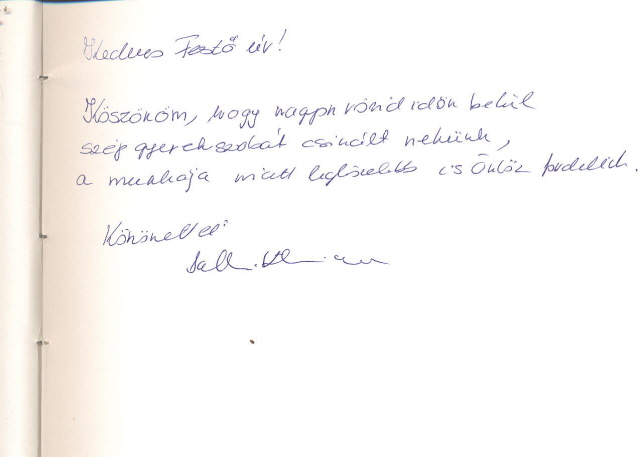 Kedves Festő úr!
Köszönöm, hogy nagyon rövid időn belül
szép gyerekszobát csinált nekünk,
a munkája miatt legközelebb is Önhöz fordulok.
Köszönettel: